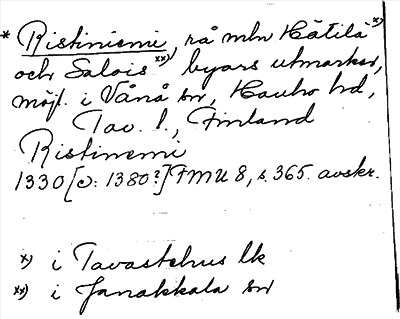 * Ristiniemi, rå mln Hätilä x)
och Salois xx) byars utmarker,
möjl. i Vånå sn, Hauho hd,
Tav. l., Finland
Ristinemi
1330 [ɔ: 1380?] FMU 8, s. 365. avskr.
x) i Tavastehus lk
xx) i Janakkala sn